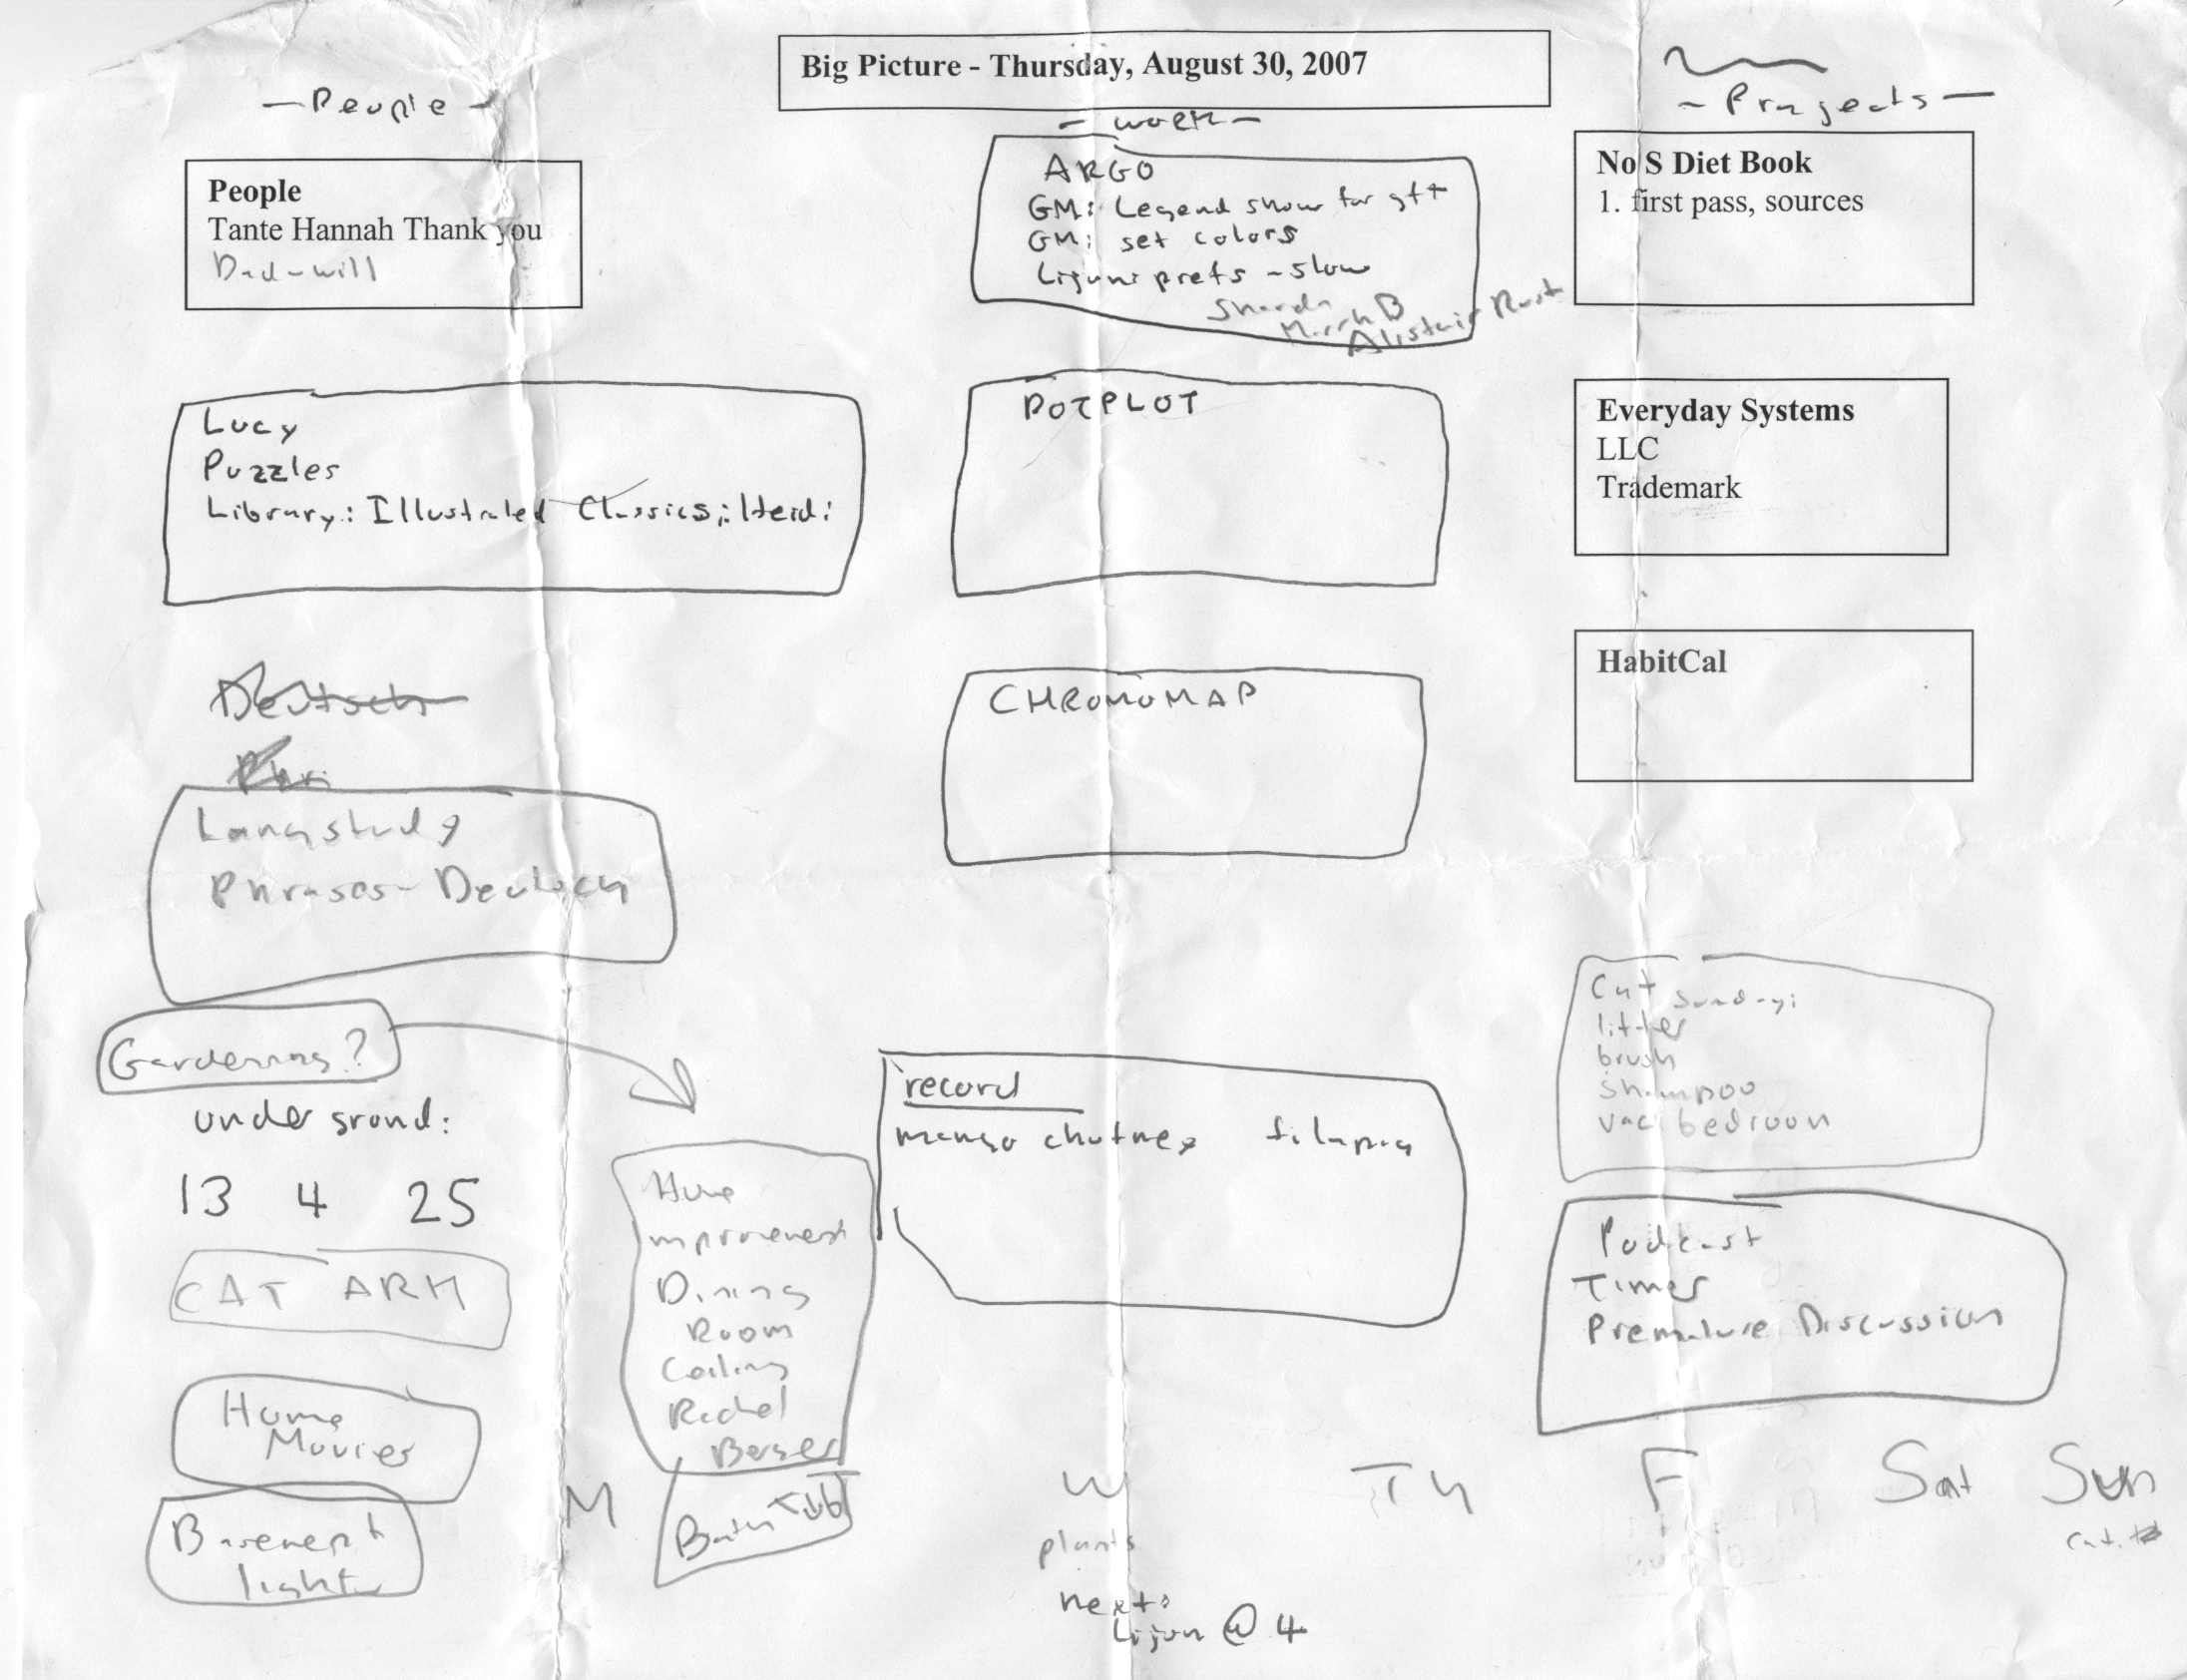 Big Picture - Thursday, August 30, 2007
- People -
People
Tante Hannah Thank you
Dad - will
Lucy
Puzzles
Library: Illustrated Classics; Heidi
Deutsch
Phr
Lang study
Phrases - Deutsch
Gardening?
under grond:
13 4 25
CAT ARM
Home
Movies
Basement
light
- work -
ARGO
GM: Legend show for gft
GM: set colors
Lijun: prefs - slow
Alistair Rust
DOTPLOT
CHROMOMAP
record
mango chutney tilapia
Home
improvement
Dining
Room
Ceiling
Rachel
Berger
Bath Tub
- Projects -
No S Diet Book
1. first pass, sources
Everyday Systems
LLC
Trademark
HabitCal
Cat Sunday:
litter
brush
shampoo
vac bedroom
Podcast
Timer
Premature Discussion
M T W Th F Sat Sun
plants
cat
next:
Lijun @ 4